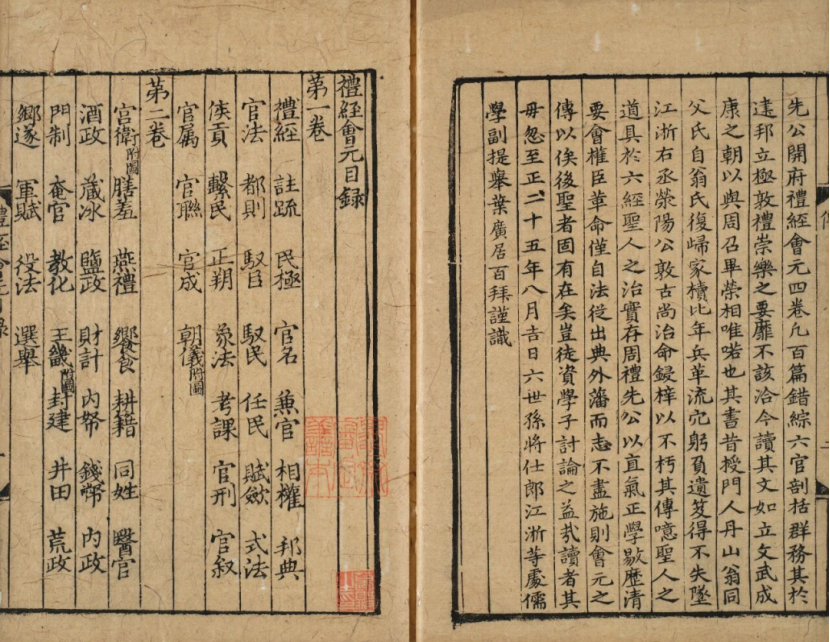 先公開府禮經會元四卷凡百篇錯綜六官剖括群務其於
建邦立極敦禮崇樂之要靡不該洽今讀其文如立文武成
康之朝以與周召畢榮相唯喏也其書昔授門人丹山翁同
父氏自翁氏復歸家櫝比年兵革流宂躬負遺笈得不失墜
江浙右丞滎陽公敦古尚治命鋟梓以不朽其傳噫聖人之
道具於六經聖人之治實存周禮先公以直氣正學敭歷清
要會權臣革命僅自法從出典外藩而志不盡施則會元之
傳以俟後聖者固有在矣豈徒資學子討論之益哉讀者其
毋忽至正二十五年八月吉日六世孫將仕郎江浙等處儒
學副提舉葉廣居百拜謹識
禮經會元目録
第一卷
禮經 註疏 民極 官名 兼官 相權 邦典
官法 都則 馭臣 馭民 任民 賦斂 式法
侯貢 繫民 正朔 象法 考課 官刑 官叙
官属 官聯 官成 朝儀附圖
第二卷
宫衛附圖 膳羞 燕禮 饗食 耕籍 同姓 醫官
酒政 藏冰 鹽政 財計 内帑 錢幣 内政
門制 奄官 教化 王畿附圖 封建 井田 荒政
鄉遂 軍賦 役法 選舉